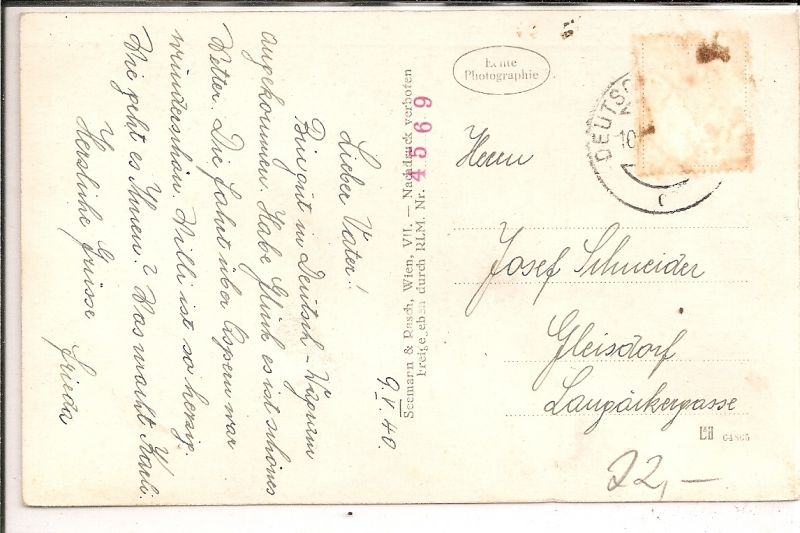 9.V.40.
Lieber Vater!
Bin gut in Deutsch-Wagram
angekommen. Habe Glück es ist schönes
Wetter. Die Fahrt über Aspern war
wunderschön. Willi ist so herzig.
Wie geht es Ihnen? Was macht Karli.
Herzliche Grüsse
Frieda
Seemann & Rasch, Wien, VII. — Nachdruck verboten
Freigegeben durch RLM. Nr.
4569
Echte
Photographie
DEUTSC
10
Herrn
Josef Schneider
Gleisdorf
Laugäckergasse
04805
22,—